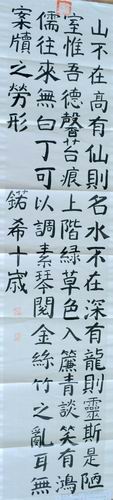 山不在高有仙則名水不在深有龍則靈斯是陋
室惟吾德馨苔痕上階緑草色入簾青談笑有鴻
儒往來無白丁可以調素琴閱金絲竹之亂耳無
案牘之勞形
希十歲